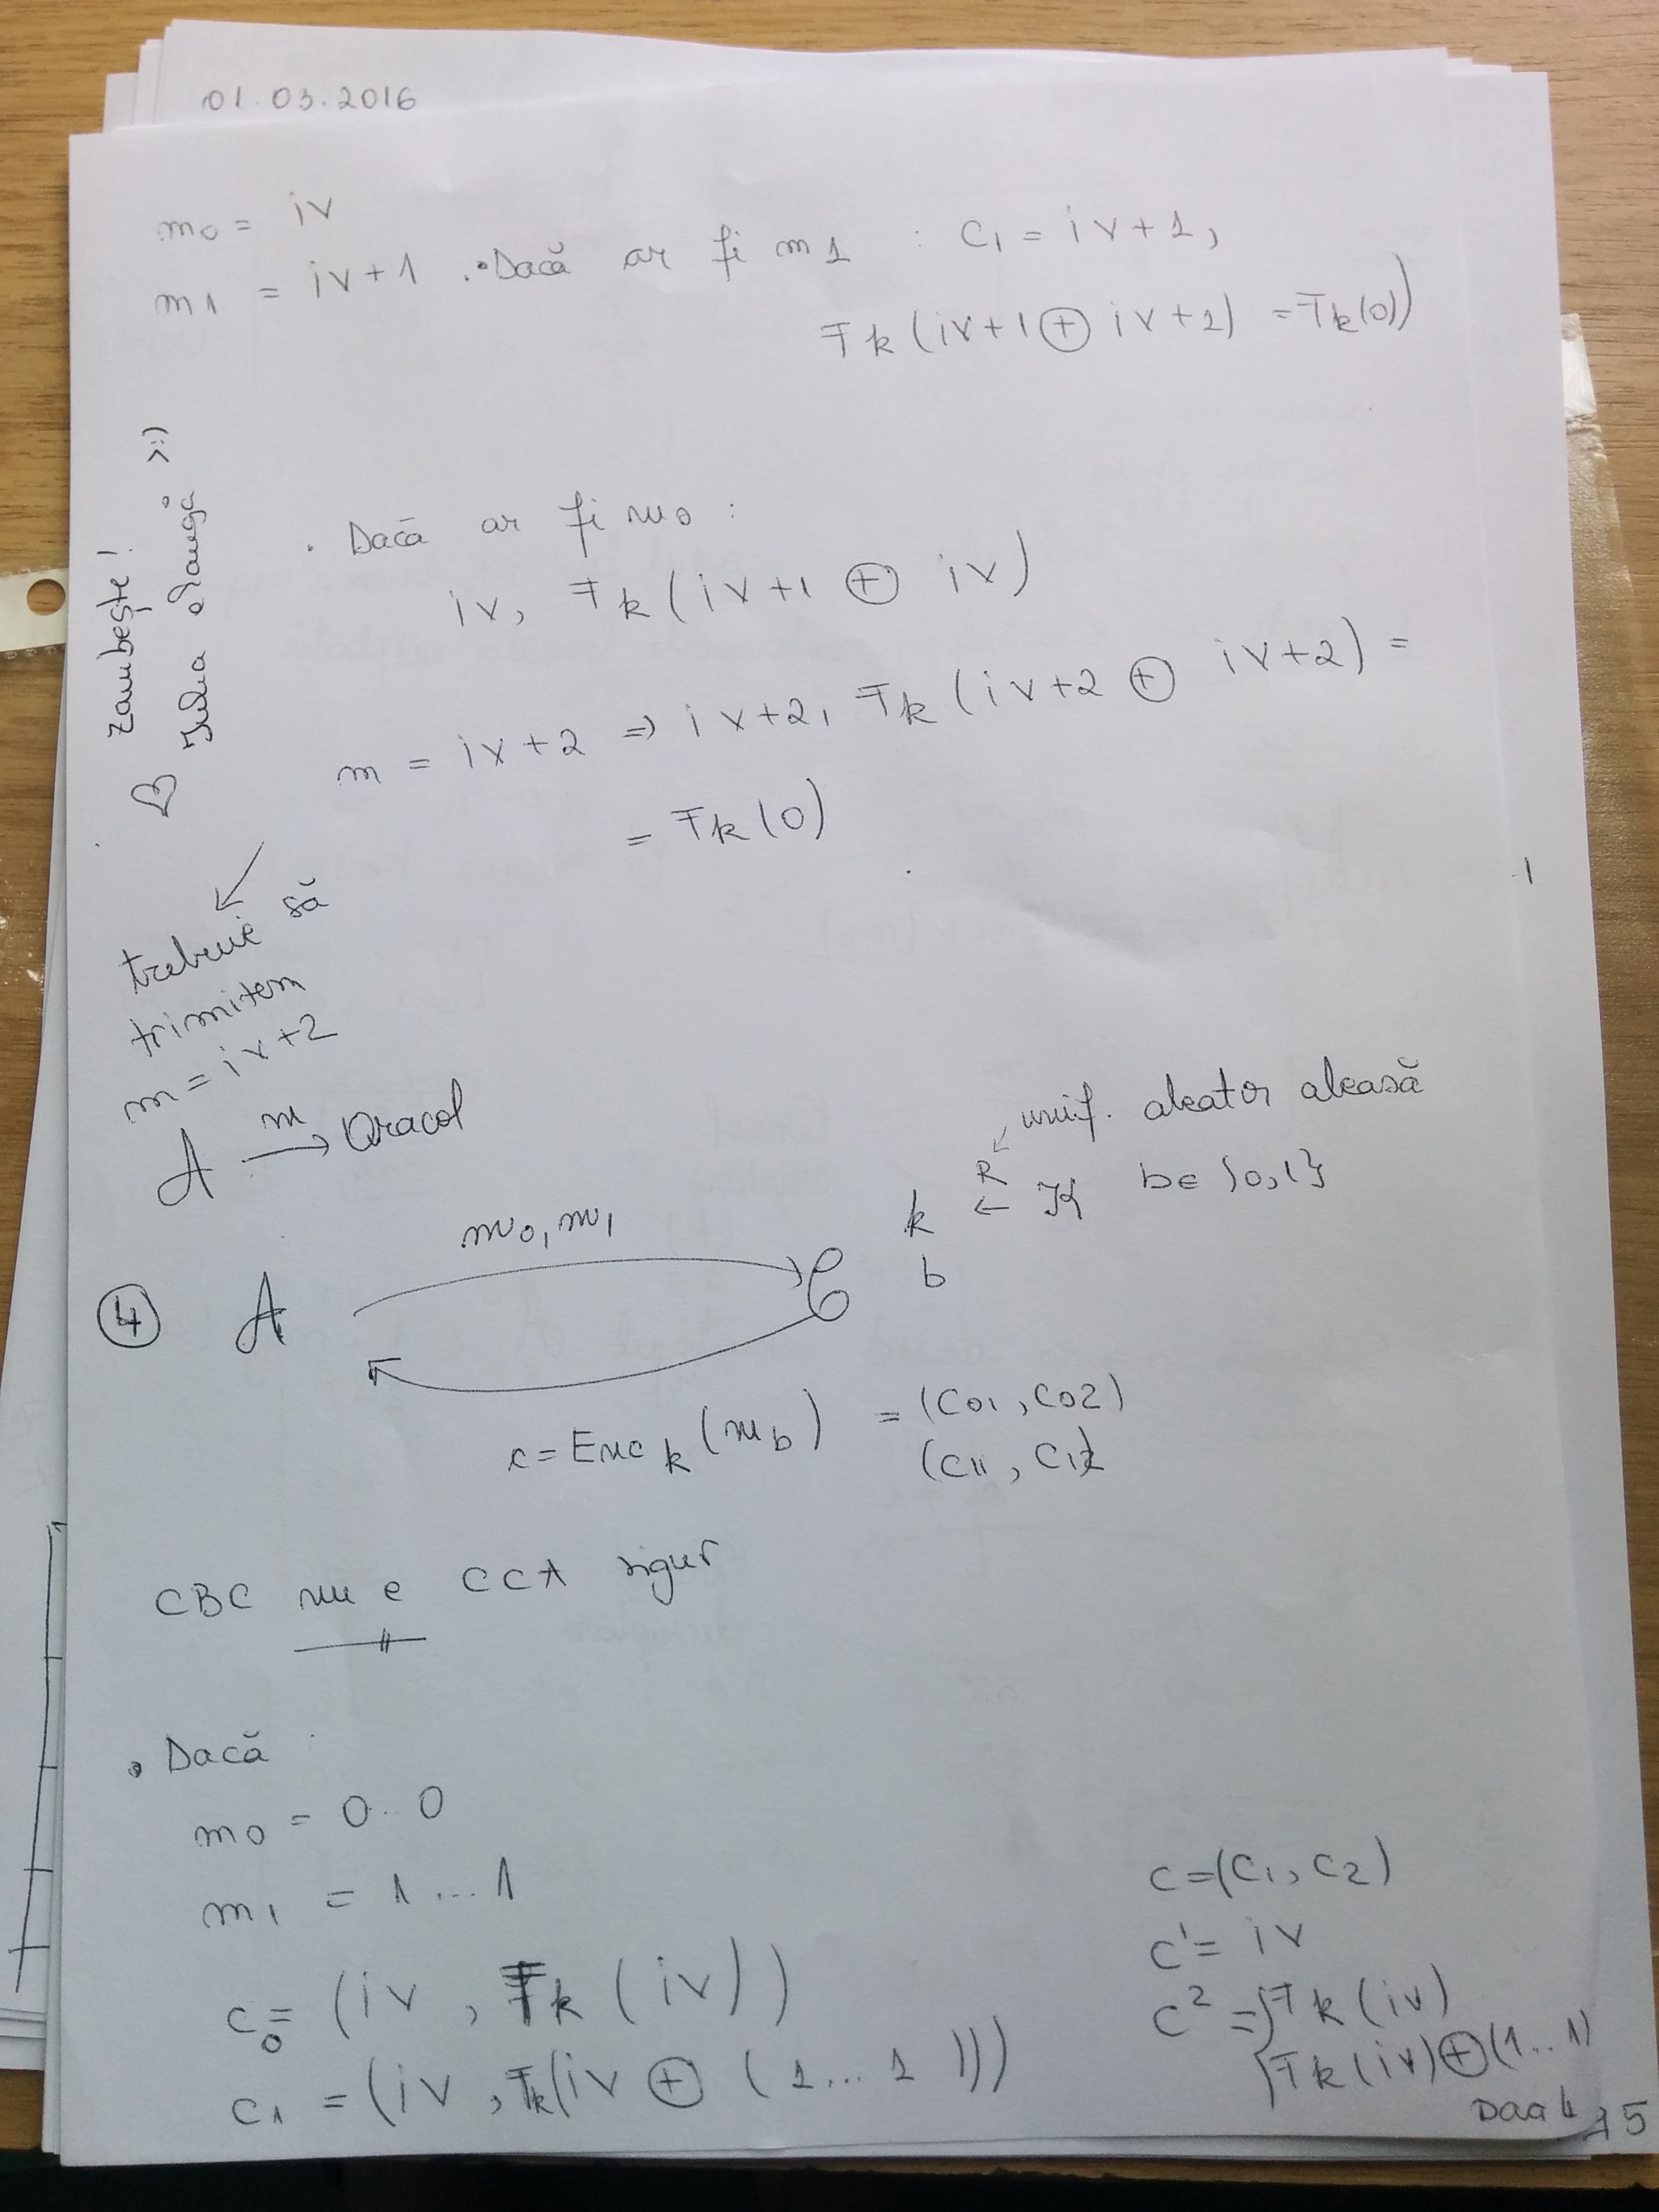 01.03.2016
m0 = iv
m1 = iv+1 . • Dacă ar fi m1 : C1 = iv+1,
Fk(iv+1 ⊕ iv+1) = Fk(0))
zambește!
♡ Iulia :)
• Dacă ar fi m0 :
iv, Fk(iv+1 ⊕ iv)
m = iv+2 ⇒ iv+2, Fk(iv+2 ⊕ iv+2) =
= Fk(0)
trebuie să
trimitem
m = iv+2
A m → Oracol
unif. aleator aleasă
k ←R K b∈{0,1}
b
m0, m1
④ A C
c = Enck(mb) = (C01, C02)
(C11, C12
CBC nu e CCA sigur
• Dacă
m0 = 0..0
m1 = 1...1
c0 = (iv, Fk(iv))
c1 = (iv, Fk(iv ⊕ (1...1)))
c=(C1, C2)
c1 = iv
c2 = { Fk(iv)
Fk(iv)⊕(1..1)
→5